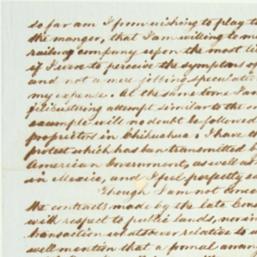 so far am I from wishing to play t
the manger, that I am willing to m
railing company upon the most li
if I were to perceive the symptoms of
and not a mere jobbing speculatio
my expense. At the same time I am
filibustering attempt similar to the o
example will no doubt be followed
proprietors in Chihuahua I have th
protest which has been transmitted by
American Government, as well as
in Mexico, and I feel perfectly se
Though I am not
the contracts made by the late Cons
with respect to public lands, nor in
transaction whatsoever relative to
well mention that a formal arran